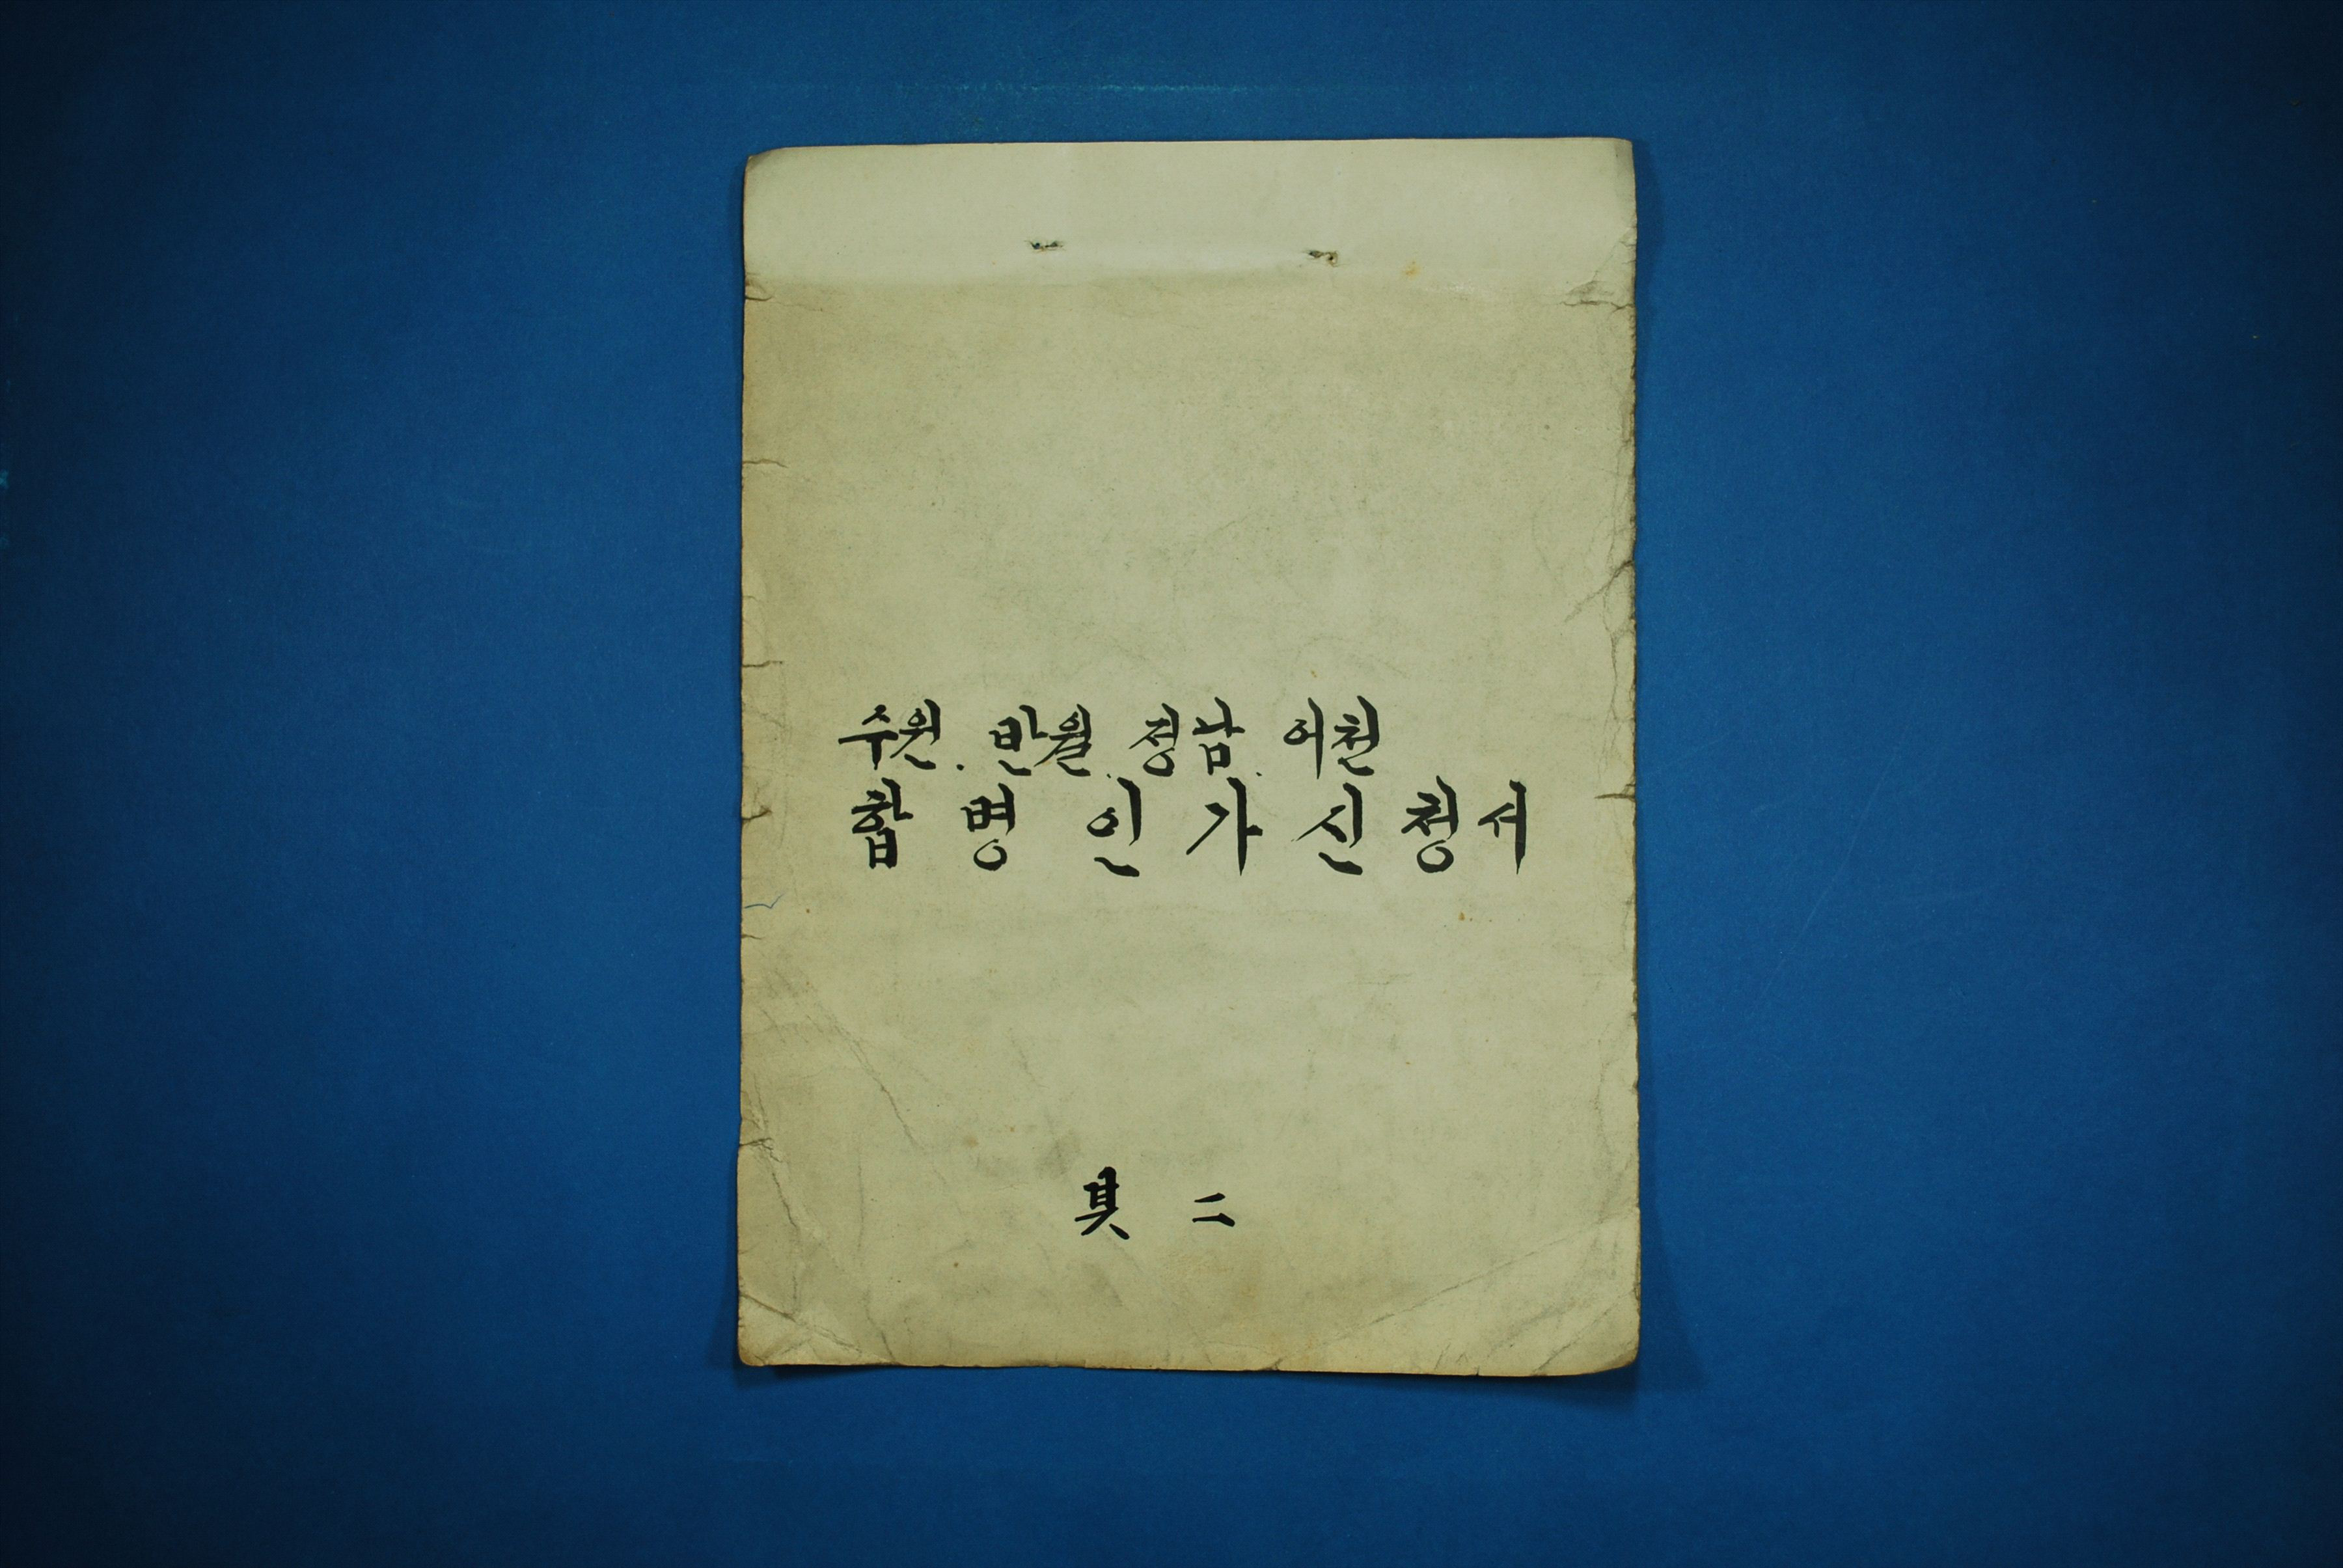 수원. 반월. 정남. 어천
합병인가신청서
其二